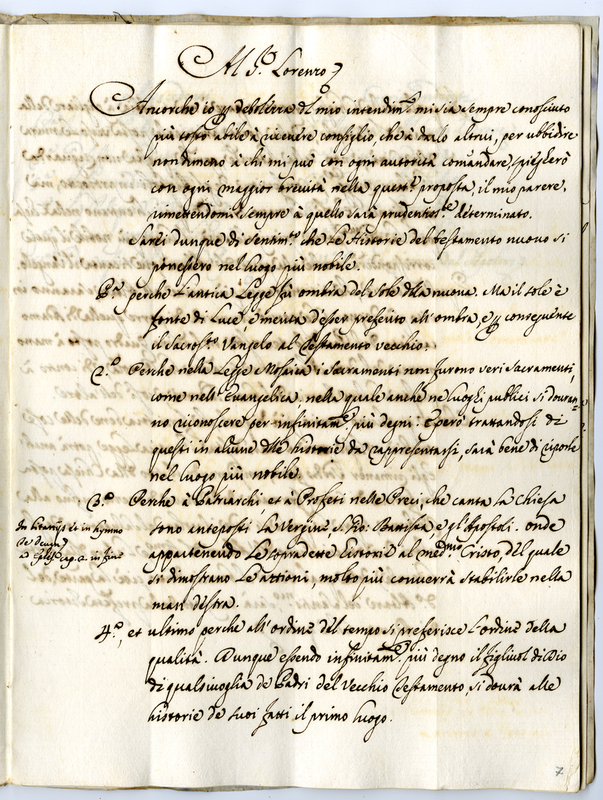 Al S.r Lorenzo
Ancorche io p debolezza del mio intendim.to mi sia sempre conosciuto
più tosto abile à ricevere consiglio, che à darlo altrui, per ubbidire
nondimeno à chi mi può con ogni autorità comandare, spiegherò
con ogni maggior brevità nella quest.e proposta, il mio parere,
rimettendomi sempre à quello sarà prudentiss.te determinato.
Sarei dunque di sentim.to che le Historie del testamento nuovo si
ponessero nel luogo più nobile.
P.o perche l'antica Legge fù ombra del Sole della nuova. Ma il sole è
fonte di Luce, e merita d'esser preferito all'ombra, e p conseguente
il Sacros.to Vangelo al Testamento vecchio.
2.o Perche nella Legge Mosaica i Sacramenti non furono veri Sacramenti,
come nell' Evangelica. nella quale anche ne luoghi publici si dovran=
no riconoscere per infinitam.te più degni: E però trattandosi di
questi in alcune delle historie da rappresentarsi, sarà bene di riporle
nel luogo più nobile.
3.o Perche à Patriarchi, et à Profeti nelle Preci, che canta la Chiesa
In Litanijs et in hymno
Te Deum
sono anteposti la Vergine, S. Gio: Battista, e gl'Apostoli. onde
appartenendo Le sopradette Historie al med.mo Cristo, del quale
si dimostrano Le attioni, molto più converrà stabilirle nella
man' destra.
4.o, et ultimo perche all'ordine del tempo si preferisce l'ordine della
qualità. Dunque essendo infinitam.te più degno il figliuol di Dio
di qualsivoglia de Padri del Vecchio Testamento, si dovrà alle
historie de suoi fatti il primo luogo.
7